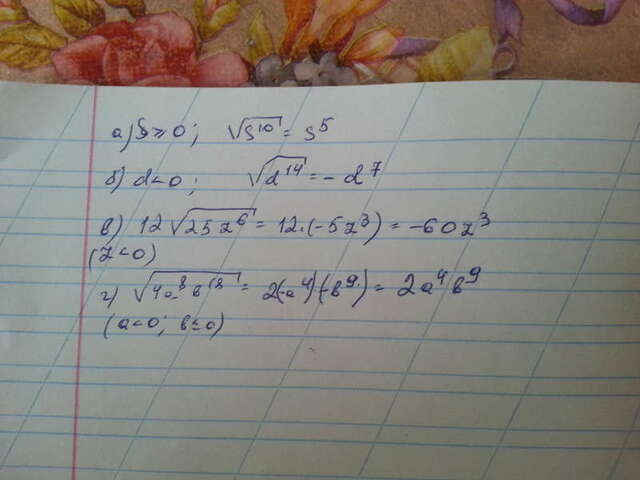 а) S ≥ 0; √S¹⁰ = S⁵
б) d < 0; √d¹⁴ = - d⁷
в) 12√25z⁶ = 12·(-5z³) = -60z³
(z < 0)
г) √4a⁸b¹⁸ = 2(-a⁴)(-b⁹) = 2a⁴b⁹
(a < 0; b ≤ 0)